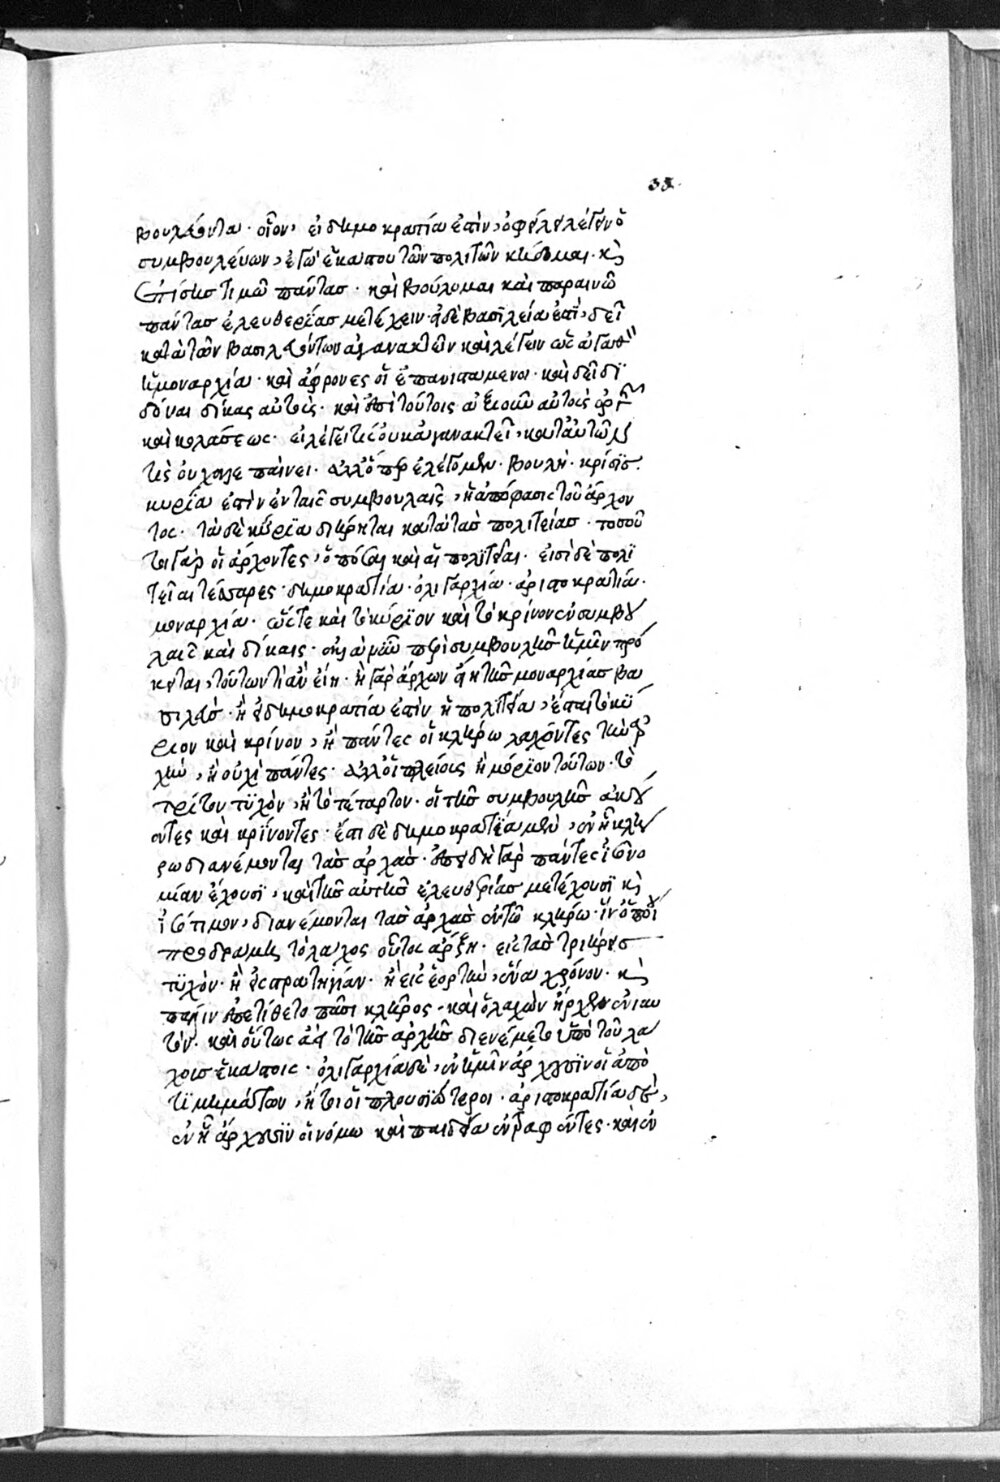 33.
βουλεύονται· οἷον, εἰ δημοκρατία ἐστὶν, ὀφείλει λέγειν ὁ
συμβουλεύων, ἐγὼ ἑκάστου τῶν πολιτῶν κήδομαι· κὶ
ἐπίσης τιμῶ πάντας· καὶ βούλομαι καὶ παραινῶ
πάντας ἐλευθερίας μετέχειν· ἡ δὲ βασιλεία ἐστὶ, δεῖ
κατὰ τῶν βασιλευόντων ἀγανακτεῖν καὶ λέγειν ὡς ἀγαθὴ
ἡ μοναρχία· καὶ ἄφρονες οἱ ἐπανιστάμενοι· καὶ δεῖ δι
δόναι δίκας αὐτοὺς· καὶ ἐπὶ τούτοις ἀξιοῦν αὐτοὺς ὀργῆς
καὶ κολάσεως· εἰ λέγει τις οὐκ ἀγανακτεῖ, κατ' αὐτῶν
τίς οὐχ ἕξει ἐπαινεῖ· ἀλλ' ὅπερ ἐλέγομεν· βουλὴ· κρίσις·
κυρία ἐστὶν ἐν ταῖς συμβουλαῖς, ἡ ἀπόφασις τοῦ ἄρχον
τος· τὰ δὲ κύρια διῄρηται κατὰ τὰς πολιτείας· τοσοῦ
τοι γὰρ οἱ ἄρχοντες, ὁπόσαι καὶ αἱ πολιτεῖαι· εἰσὶ δὲ πολι
τεῖαι τέσσαρες· δημοκρατία· ὀλιγαρχία· ἀριστοκρατία·
μοναρχία· ὥστε καὶ τὸ κύριον καὶ τὸ κρίνον ἐν συμβου
λαῖς καὶ δίκαις· ἐπεὶ ἡμῖν περὶ συμβουλῆς ἡμῖν πρό
κειται, τούτων τὶ ἂν εἴη· ἢ γὰρ ἄρχων ἐστὶ τῆς μοναρχίας βα
σιλεύς· ἢ εἰ δημοκρατία ἐστὶν ἡ πολιτεία, ἔσται τὸ κύ
ριον καὶ κρίνον, ἢ πάντες οἱ κλήρῳ λαχόντες τὴν ἀρ
χὴν, ἢ οὐχὶ πάντες· ἀλλ' οἱ πλείους ἢ μόριον τούτων· τὸ
τρίτον τυχὸν, ἢ τὸ τέταρτον· οἱ τῆς συμβουλῆς ἀκού
οντες καὶ κρίνοντες· ἔστι δὲ δημοκρατία μὲν, ἐν ᾗ κλή
ρῳ διανέμονται τὰς ἀρχάς· ἐπειδὴ γὰρ πάντες ἰσονο
μίαν ἔχουσι, καὶ τῆς αὐτῆς ἐλευθερίας μετέχουσι κὶ
ἰσότιμον, διανέμονται τὰς ἀρχὰς ἐν τῷ κλήρῳ· ἵν' ὅπου
προδράμῃ τὸ λάχος οὗτος ἄρξῃ· εἰς τὰς τριήρεις
τυχὸν· ἢ εἰς στρατηγίαν· ἢ εἰς ἑορτὴν, ἕνα χρόνον· κὶ
πάλιν ἐπετίθετο πᾶσι κλῆρος· καὶ ὁ λαχὼν ἦρχεν ἐνιαυ
τόν· καὶ οὕτως ἀεὶ τὸ τῆς ἀρχῆς διενέμετο ὑπὸ τοῦ λά
χους ἑκάστοις· ὀλιγαρχία δὲ, ἐν ᾗ μὲν ἄρχουσιν οἱ ἀπὸ
τιμημάτων, ἤτοι οἱ πλουσιώτεροι· ἀριστοκρατία δὲ,
ἐν ᾗ ἄρχουσιν οἱ νόμῳ καὶ παιδείᾳ ἐντραφέντες· καὶ ἐν